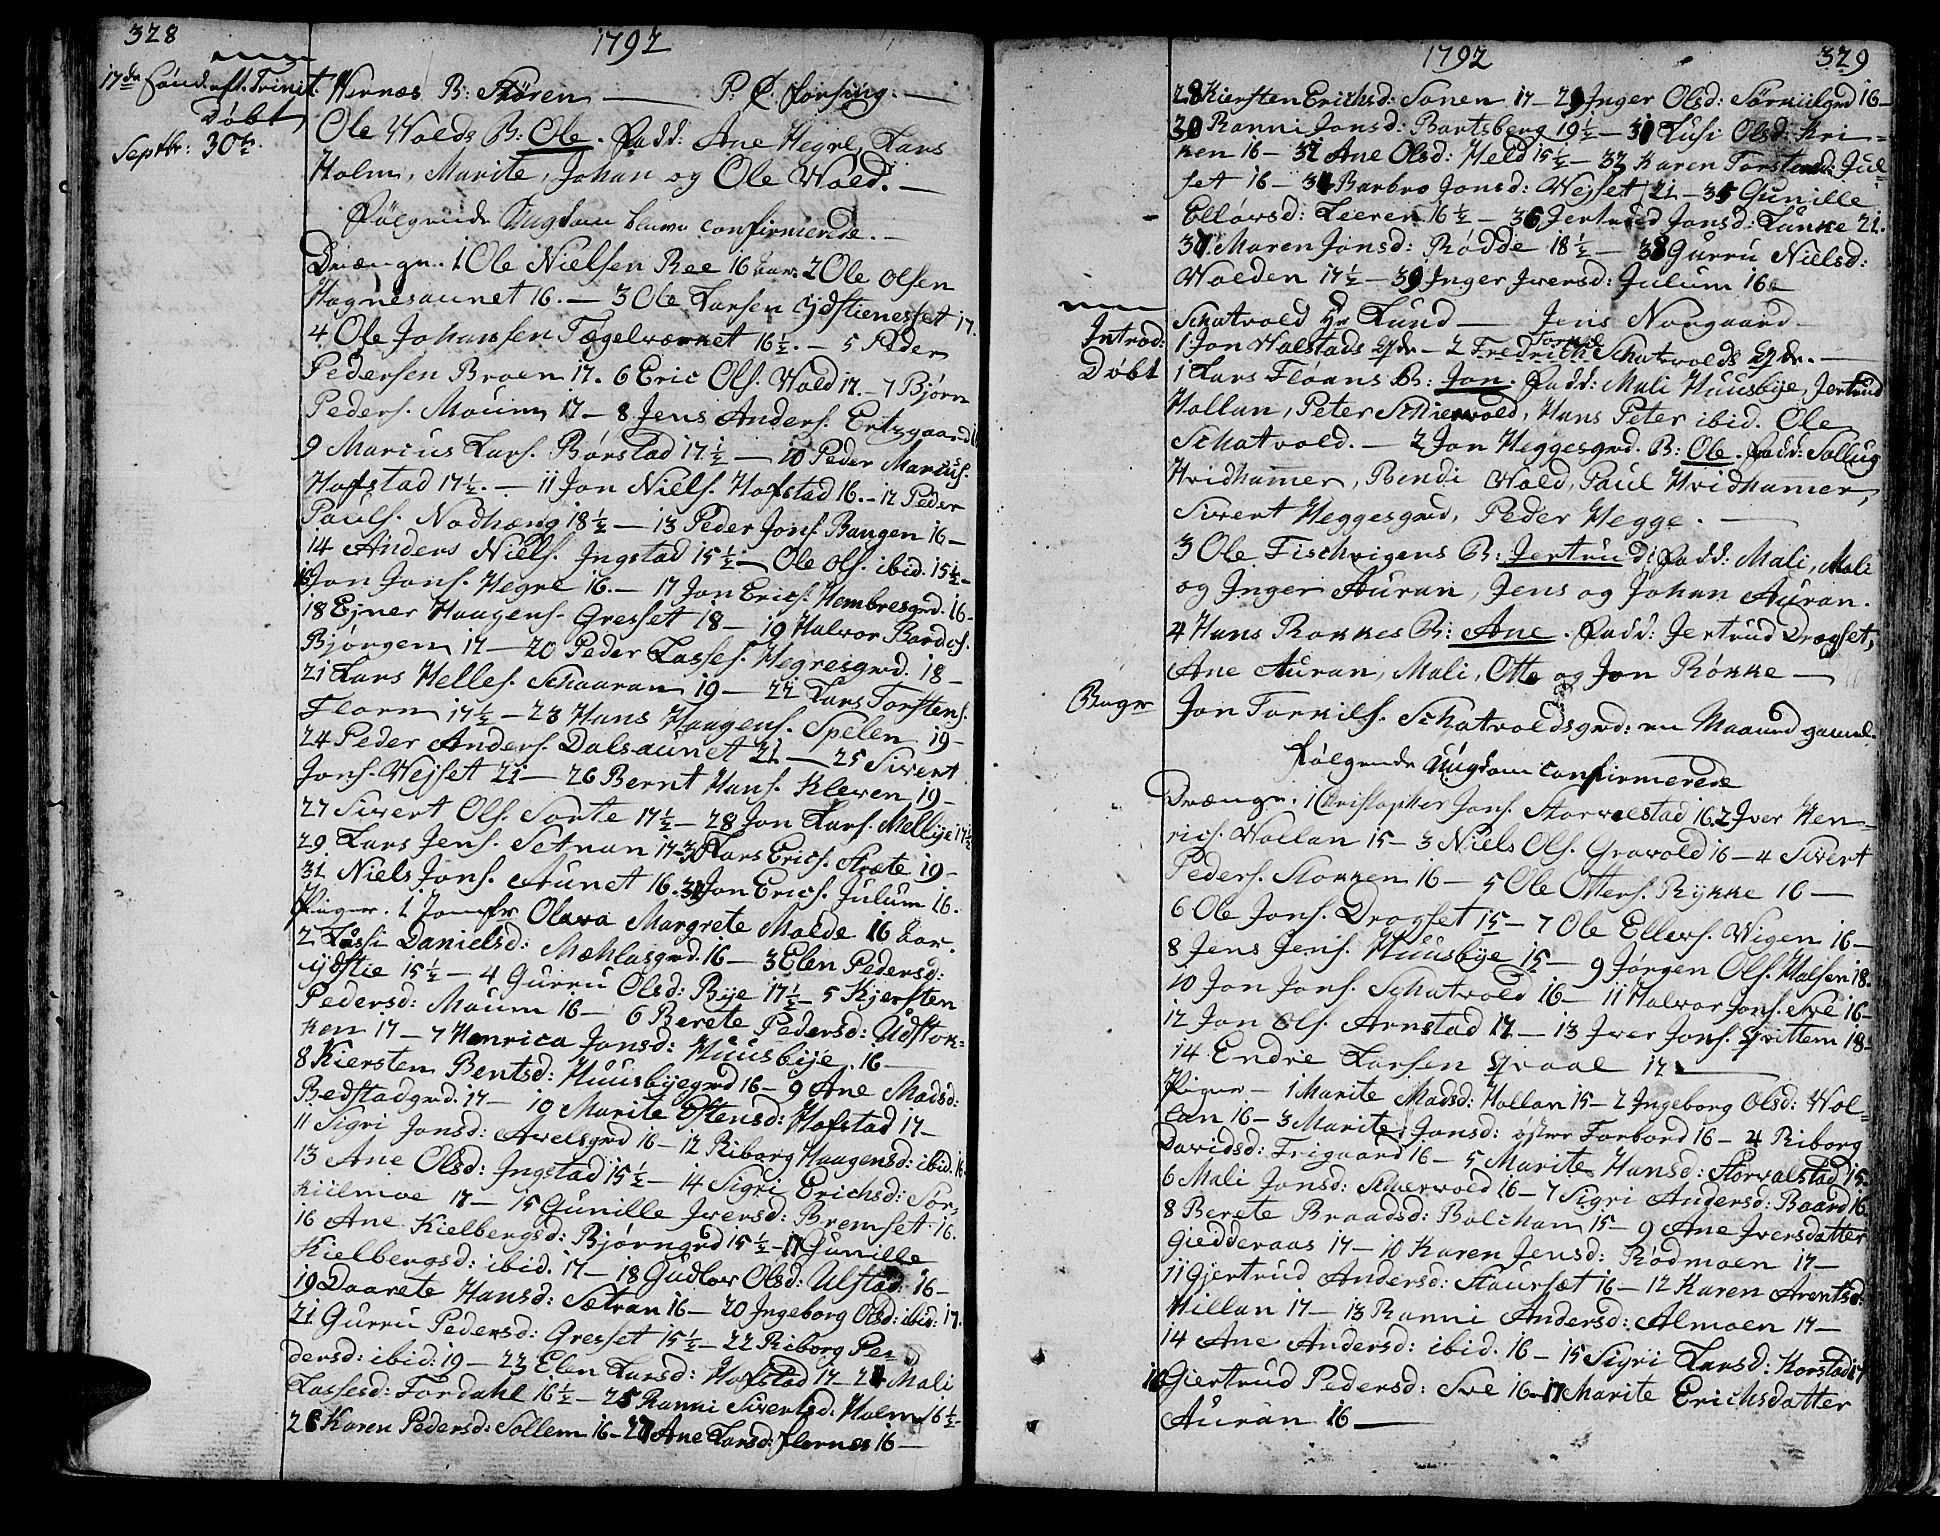 328
1792
17de Sönd. eft. Trinit.
Døbt
Septbr: 30te
Wernæs B: Skören — P. C. Forsing. —
Ole Wolds B: Ole. Fadd: Ane Hegre, Lars
Holm, Marite, Johan og Ole Wold. —
Følgende Ungdom bleve confirmerede. —
Drænge. 1 Ole Nielsen Ree 16 aar. 2 Ole Olsen
Hognesaunet 16. — 3 Ole Larsen Ydstienesset 17.
4 Ole Johansen Tegelværket 16½. — 5 Peder
Pedersen Broen 17. 6 Eric Ols. Wold 17. — 7 Bjørn
Peders. Mouum 17 — 8 Jens Anders. Ertzgaard
9 Marius Lars. Børstad 17½ — 10 Peder Marius.
Hofstad 17½. — 11 Jon Niels. Hofstad 16. — 12 Peder
Pauls. Nodhæng 18½ — 13 Peder Jons. Baugen 16 —
14 Anders Niels. Ingstad 15½ — Ole Ols. ibid. 15½ —
Jon Jons. Hegre 16. — 17 Jon Erics. Hembresgrd. 16 —
18 Ejner Haagens. Gresset 18 — 19 Halvor Bardos.
Bjørgen 17 — 20 Peder Lasses. Hegresgrd. 18 —
21 Lars Helles. Schaaran 19 — 22 Lars Torstens.
Florn 17½ — 23 Hans Haagens. Spelen 19 —
24 Peder Anders. Dalsaunet 21 — 25 Sivert
Jons. Wejset 21 — 26 Bernt Hans. Kleven 19 —
27 Sivert Ols. Sorte 17½ — 28 Jon Lars. Mellbye 17½
29 Lars Jens. Setnan 17 — 30 Lars Erics. Stræte 19 —
31 Niels Jons. Aunet 16. 32 Jon Erics. Julum 16.
Piger. 1 Jomfr Olava Margrete Molde 16 aar.
2 Lussi Danielsd: Mæhlasgrd. 16 — 3 Elen Pedersd:
Ydstie 15½ — 4 Gurru Olsd: Bye 17½ — 5 Kjersten
Pedersd: Mouum 16 — 6 Berete Pedersd: Udstok=
ken 17 — 7 Henrica Jonsd: Huusbye. 16 —
8 Kiersten Bentsd: Huusbyegrd 16 — 9 Ane Madsd:
Bedstadgrd. 17 — 10 Marite Estensd: Hofstad 17 —
11 Sigri Jonsd: Avelsgrd 16 — 12 Riborg Haagensd: ibid. 16
13 Ane Olsd: Ingstad 15½ — 14 Sigri Erichsd: Sør,
kiilmoe 17 — 15 Gunille Iversd: Bremset 16.
16 Ane Kielbergsd: Bjørngrd 15½ — 17 Gunille
Kielbergsd: ibid. 17 — 18 Gudlov Olsd: Ulstad: 16 —
19 Daarete Hansd: Sætran 16 — 20 Ingeborg Olsd: ibid: 17.
21 Gurru Pedersd: Gresset 15½ — 22 Riborg Pe=
dersd: ibid: 19 — 23 Elen Larsd: Hofstad 17 — 24 Mali
Lassesd: Fordahl 16½ — 25 Ranni Sivertsd: Holm 16½ —
26 Karen Pedersd: Sollem 16 — 27 Ane Larsd: Flornes 16 —
1792
329
28 Kiersten Erichsd: Sonen 17 — 29 Inger Olsd: Sørkiilgrd 16 —
30 Ranni Jonsd: Bartsberg 19½ — 31 Lusi Olsd: Kri=
ken 16 — 32 Ane Olsd: Held 15½ — 33 Karen Torstensd: Jul=
set 16 — 34 Barbro Jonsd: Wejset 21 — 35 Gunille
Elløvsd: Leeren 16½ — 36 Jertrud Jonsd: Lunke 21.
37 Maren Jonsd: Rødde 18½ — 38 Gurru Nielsd:
Wolden 17½ — 39 Inger Iversd: Julum 16 —
Schatvold Hr Lund — Jens Norgaard
Introd:
1 Jon Walstads Qde — 2 Fredrich Torkil Schatvolds Qde. —
Døbt
1 Lars Floans B: Jon. Fadd: Mali Huusbye, Jertrud
Hollan, Peter Schiervold, Hans Peter ibid. Ole
Schatvold. — 2 Jon Heggesgrd. B: Ole. Fadd: Sollug
Hvidhamer, Bendi Wold, Paul Hvidhamer,
Sivert Heggesgrd, Peder Hegge. —
3 Ole Fischvigens B: Jertrud: Fadd: Mali, Mali
og Inger Auran, Jens og Johan Auran.
4 Hans Rokkes B: Ane. Fadd: Jertrud Drogset,
Ane Auran, Mali, Otte og Jon Røkke —
Begr
Jon Torkils. Schatvoldsgrd: en Maaned gammel.
Følgende Ungdom confirmerede
Drænge. 1 Christopher Jons. Storvelstad 16. 2 Iver Hen=
rics. Wollan 15 — 3 Niels Ols. Gravold 16 — 4 Sivert
Peders. Stokken 16 — 5 Ole Otters. Rykke 16 —
6 Ole Jons. Drogset 15 — 7 Ole Ellevs. Wigen 16 —
8 Jens Jens. Huusbye 15 — 9 Jørgen Ols. Halsen 18.
10 Jon Jons. Schatvold 16 — 11 Halvor Jons. Sve 16 —
12 Jon Ols. Arnstad 17 — 13 Iver Jons. Qvittem 18 —
14 Endre Larsen Qvaal 17 —
Piger — 1 Marite Madsd: Hollan 15 — 2 Ingeborg Olsd: Wol=
lan 16 — 3 Marite Jonsd: østre Forbord 16 — 4 Riborg
Davidsd: Frigaard 16 — 5 Marite Hansd: Storvalstad 15
6 Mali Jonsd: Schiervold 16 — 7 Sigri Andersd: Baard 16
8 Berete Braadsd: Bolchan 15 — 9 Ane Iversdatter
Gjedderaas 17 — 10 Karen Jensd: Rødmoen 17 —
11 Gjertrud Andersd: Staursæt 16 — 12 Karen Arentsd:
Killan 17 — 13 Ranni Andersd: Almoen 17 —
14 Ane Andersd: ibid. 16 — 15 Sigri Larsd: Korstad 17
16 Gjertrud Pedersd: Sve 16 — 17 Marite Erichsdatter
Auran 16 —